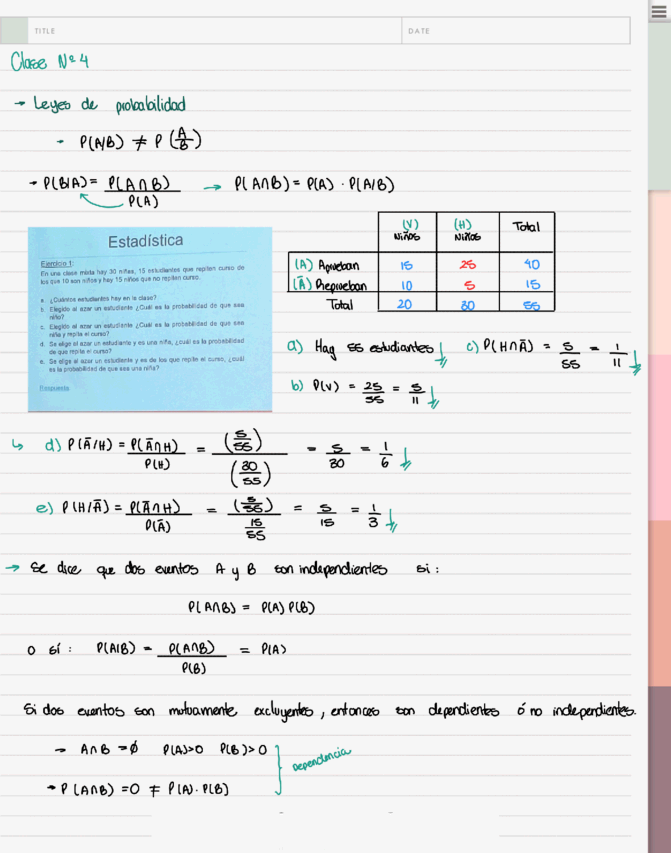 TITLE DATE
Clase Nº4
→ Leyes de probabilidad
→ P(A/B) ≠ P(A/B)
→ P(B/A) = P(A∩B)/P(A) → P(A∩B) = P(A) · P(A/B)
Estadística
Ejercicio 1:
En una clase mixta hay 30 niñas, 15 estudiantes que repiten curso de
los que 10 son niños y hay 15 niños que no repiten curso.
a. ¿Cuántos estudiantes hay en la clase?
b. Elegido al azar un estudiante ¿Cuál es la probabilidad de que sea
niño?
c. Elegido al azar un estudiante ¿Cuál es la probabilidad de que sea
niña y repita el curso?
d. Se elige al azar un estudiante y es una niña, ¿cuál es la probabilidad
de que repita el curso?
e. Se elige al azar un estudiante y es de los que repite el curso, ¿cuál
es la probabilidad de que sea una niña?
Respuesta
(V) Niños (H) Niños Total
(A) Aprueban 15 25 40
(Ā) Reprueban 10 5 15
Total 20 30 55
a) Hay 55 estudiantes
c) P(H∩Ā) = 5/55 = 1/11
b) P(V) = 25/55 = 5/11
d) P(Ā/H) = P(Ā∩H)/P(H) = (5/55)/(30/55) = 5/30 = 1/6
e) P(H/Ā) = P(Ā∩H)/P(Ā) = (5/55)/(15/55) = 5/15 = 1/3
→ Se dice que dos eventos A y B son independientes si:
P(A∩B) = P(A) P(B)
o sí: P(A|B) = P(A∩B)/P(B) = P(A)
Si dos eventos son mutuamente excluyentes, entonces son dependientes ó no independientes.
→ A∩B = ∅ P(A)>0 P(B)>0
dependencia
→ P(A∩B) = 0 ≠ P(A)·P(B)